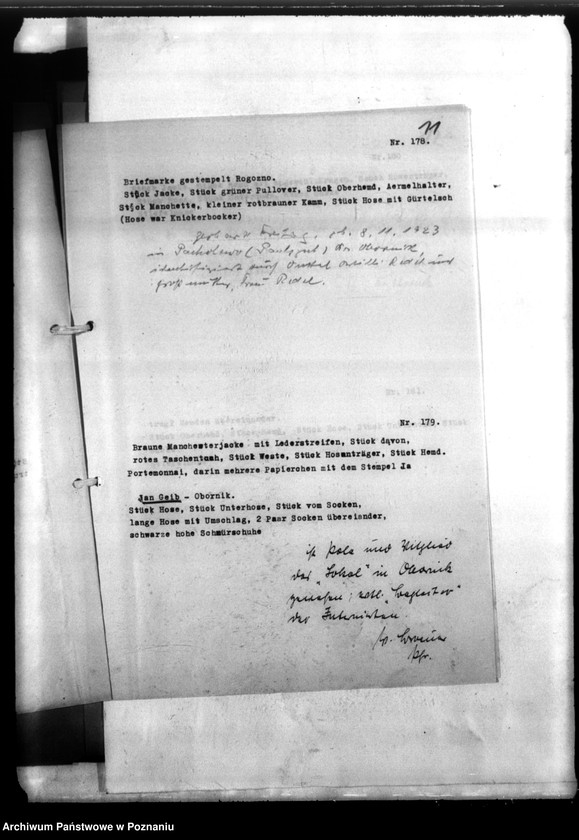 11
Nr. 178.
Briefmarke gestempelt Rogozno.
Stück Jacke, Stück grüner Pullover, Stück Oberhemd, Aermelhalter,
Stück Manchette, kleiner rotbrauner Kamm, Stück Hose mit Gürtelsch
(Hose war Knickerbocker)
geb. 8. 11. 1923
in
identifiziert durch Onkel und
Großmutter, Frau Redel.
Nr. 179.
Braune Manchesterjacke mit Lederstreifen, Stück davon,
rotes Taschentuch, Stück Weste, Stück Hosenträger, Stück Hemd.
Portemonnai, darin mehrere Papierchen mit dem Stempel Ja
Jan Geib - Obornik.
Stück Hose, Stück Unterhose, Stück vom Socken,
lange Hose mit Umschlag, 2 Paar Socken übereiander,
schwarze hohe Schnürschuhe
ist Pole und Mitglied
des "Sokol" in Obornik
gewesen; "Begleiter"
der Internierten.
Pfr.
Archiwum Państwowe w Poznaniu